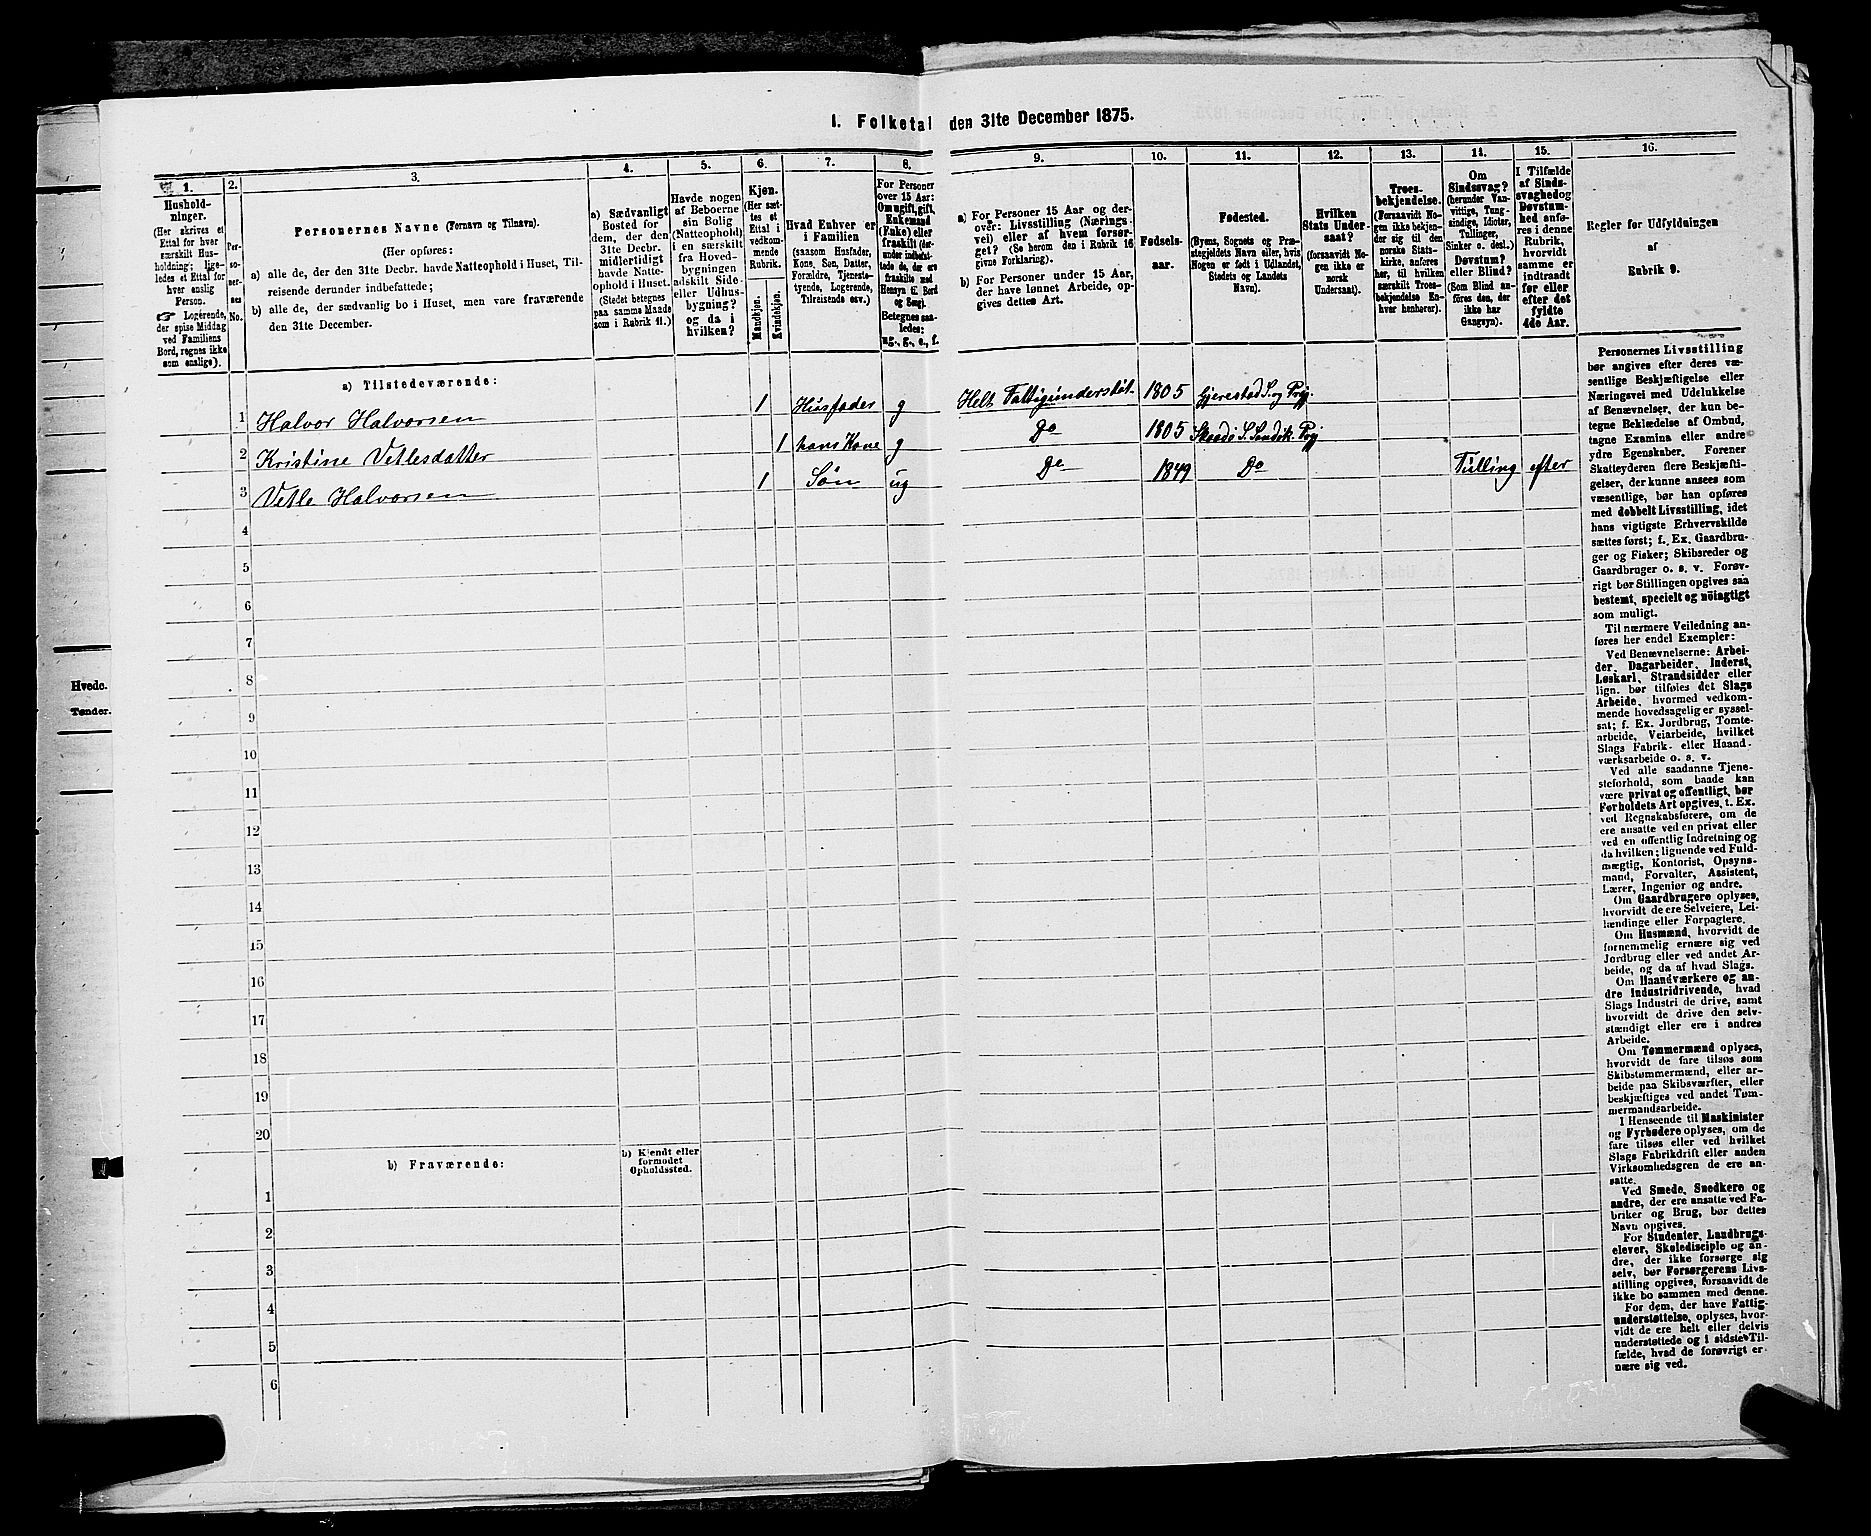 I. Folketal den 31te December 1875.
1.
Hushold-
ninger.
(Her skrives et
Ettal for hver
særskilt Hus-
holdning; lige-
ledes et Ettal for
hver enslig
Person.
☞ Logerende,
der spise Middag
ved Familiens
Bord, regnes ikke
som enslige).
2.
Per-
so-
ner-
nes
No.
3.
Personernes Navne (Fornavn og Tilnavn).
(Her opføres:
a) alle de, der den 31te Decbr. havde Natteophold i Huset, Til-
reisende derunder indbefattede;
b) alle de, der sædvanlig bo i Huset, men vare fraværende
den 31te December.
4.
a) Sædvanligt
Bosted for
dem, der den
31te Decbr.
midlertidigt
havde Natte-
ophold i Huset.
(Stedet betegnes
paa samme Maade
som i Rubrik 11.)
5.
Havde nogen
af Beboerne
sin Bolig
(Natteophold)
i en særskilt
fra Hoved-
bygningen
adskilt Side-
eller Udhus-
bygning?
og da i
hvilken?
6.
Kjøn.
(Her sæt-
tes et
Ettal i
vedkom-
mende
Rubrik.
Mandkjøn.
Kvindekjøn.
7.
Hvad Enhver er
i Familien
(saasom Husfader,
Kone, Søn, Datter,
Forældre, Tjeneste-
tyende, Logerende,
Tilreisende osv.)
8.
For Personer
over 15 Aar:
Om ugift, gift,
Enkemand
(Enke) eller
fraskilt (der-
under indbefat-
tede de, der ere
fraskilte med
Hensyn til Bord
og Seng).
Betegnes saa-
ledes:
ug., g., e., f.
9.
a) For Personer 15 Aar og der-
over: Livsstilling (Nærings-
vei) eller af hvem forsør-
get? (Se herom den i Rubrik 16
givne Forklaring).
b) For Personer under 15 Aar,
der have lønnet Arbeide, op-
gives dettes Art.
10.
Fødsels-
aar.
11.
Fødested.
(Byens, Sognets og Præ-
stegjeldets Navn eller, hvis
Nogen er født i Udlandet,
Stedets og Landets
Navn).
12.
Hvilken
Stats Under-
saat?
(forsaavidt No-
gen ikke er
norsk
Undersaat).
13.
Troes-
bekjendelse.
(Forsaavidt No-
gen ikke bekjen-
der sig til den
norske Stats-
kirke, anføres
her, til hvilken
særskilt Troes-
bekjendelse En-
hver henhører).
14.
Om
Sindssvag?
(herunder Van-
vittige, Tung-
sindige, Idioter,
Tullinger,
Sinker o. desl.)
Døvstum?
eller Blind?
(Som Blind an-
føres den, der
ikke har
Gangsyn).
15.
I Tilfælde
af Sinds-
svaghed og
Døvstum-
hed anfø-
res i denne
Rubrik,
hvorvidt
samme er
indtraadt
før eller
efter det
fyldte
4de Aar.
16.
Regler for Udfyldningen
af
Rubrik 9.
a) Tilstedeværende:
1 Halvor Halvorsen 1 Husfader g Helt Fattigunderstøt. 1805 Gjerestad S. og Prgj.
2 Kristine Vetlesdatter 1 hans Kone g Do 1805 Skaadø S. Sandøk. Prgj
3 Vetle Halvorsen 1 Søn ug Do 1849 Do Tulling efter
4
5
6
7
8
9
10
11
12
13
14
15
16
17
18
19
20
b) Fraværende:
b) Kjendt eller
formodet
Opholdssted.
1
2
3
4
5
6
Personernes Livsstilling
bør angives efter deres væ-
sentlige Beskjæftigelse eller
Næringsvei med Udelukkelse
af Benævnelser, der kun be-
tegne Beklædelse af Ombud,
tagne Examina eller andre
ydre Egenskaber. Forener
Skatteyderen flere Beskjæfti-
gelser, der kunne ansees som
væsentlige, bør han opføres
med dobbelt Livsstilling, idet
hans vigtigste Erhvervskilde
sættes først; f. Ex. Gaardbru-
ger og Fisker; Skibsreder og
Gaardbruger o. s. v. Forøv-
rigt bør Stillingen opgives saa
bestemt, specielt og nöiagtigt
som muligt.
Til nærmere Veiledning an-
føres her endel Exempler:
Ved Benævnelserne: Arbei-
der, Dagarbeider, Inderst,
Løskarl, Strandsidder eller
lign. bør tilføies det Slags
Arbeide, hvormed vedkom-
mende hovedsagelig er syssel-
sat; f. Ex. Jordbrug, Tomte-
arbeide, Veiarbeide, hvilket
Slags Fabrik- eller Haand-
værksarbeide o. s. v.
Ved alle saadanne Tjene-
steforhold, som baade kan
være privat og offentligt, bør
Forholdets Art opgives, t. Ex.
ved Regnskabsførere, om de
ere ansatte ved en privat eller
ved en offentlig Indretning og
da hvilken; lignende ved Fuld-
mægtig, Kontorist, Opsyns-
mand, Forvalter, Assistent,
Lærer, Ingeniør og andre.
Om Gaardbrugere oplyses,
hvorvidt de ere Selveiere, Lei-
lændinge eller Forpagtere.
Om Husmænd, hvorvidt de
fornemmelig ernære sig ved
Jordbrug eller ved andet Ar-
beide, og da af hvad Slags.
Om Haandværkere og an-
dre Industridrivende, hvad
Slags Industri de drive, samt
hvorvidt de drive den selv-
stændigt eller ere i andres
Arbeide.
Om Tømmermænd oplyses,
hvorvidt de fare tilsøs som
Skibstømmermænd, eller ar-
beide paa Skibsværfter, eller
beskjæftiges ved andet Tøm-
mermandsarbeide.
I Henseende til Maskinister
og Fyrbødere oplyses, om de
fare tilsøs eller ved hvilket
Slags Fabrikdrift eller anden
Virksomhedsgren de ere an-
satte.
Ved Smede, Snedkere og
andre, der ere ansatte ved Fa-
briker og Brug, bør dettes
Navn opgives.
For Studenter, Landbrugs-
elever, Skoledisciple og an-
dre, der ikke forsørge sig
selv, bør Forsørgerens Livs-
stilling opgives, forsaavidt de
ikke bo sammen med denne.
For dem, der have Fattig-
understøttelse, oplyses, hvor-
vidt de ere helt eller delvis
understøttede og i sidste Til-
fælde, hvad de forøvrigt er-
nære sig ved.
Hvede.
Tønder.